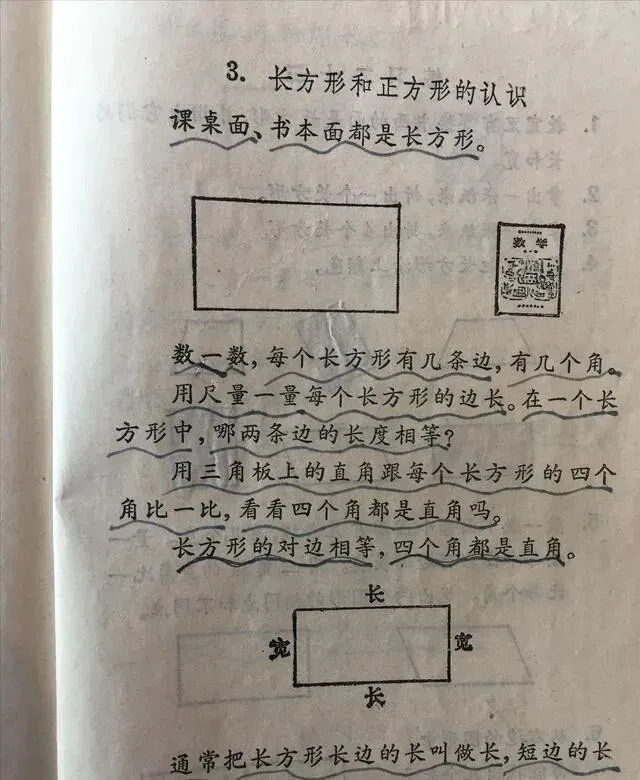 3. 长方形和正方形的认识
课桌面、书本面都是长方形。
数学
数一数，每个长方形有几条边，有几个角。
用尺量一量每个长方形的边长。在一个长
方形中，哪两条边的长度相等？
用三角板上的直角跟每个长方形的四个
角比一比，看看四个角都是直角吗。
长方形的对边相等，四个角都是直角。
长
宽 宽
长
通常把长方形长边的长叫做长，短边的长